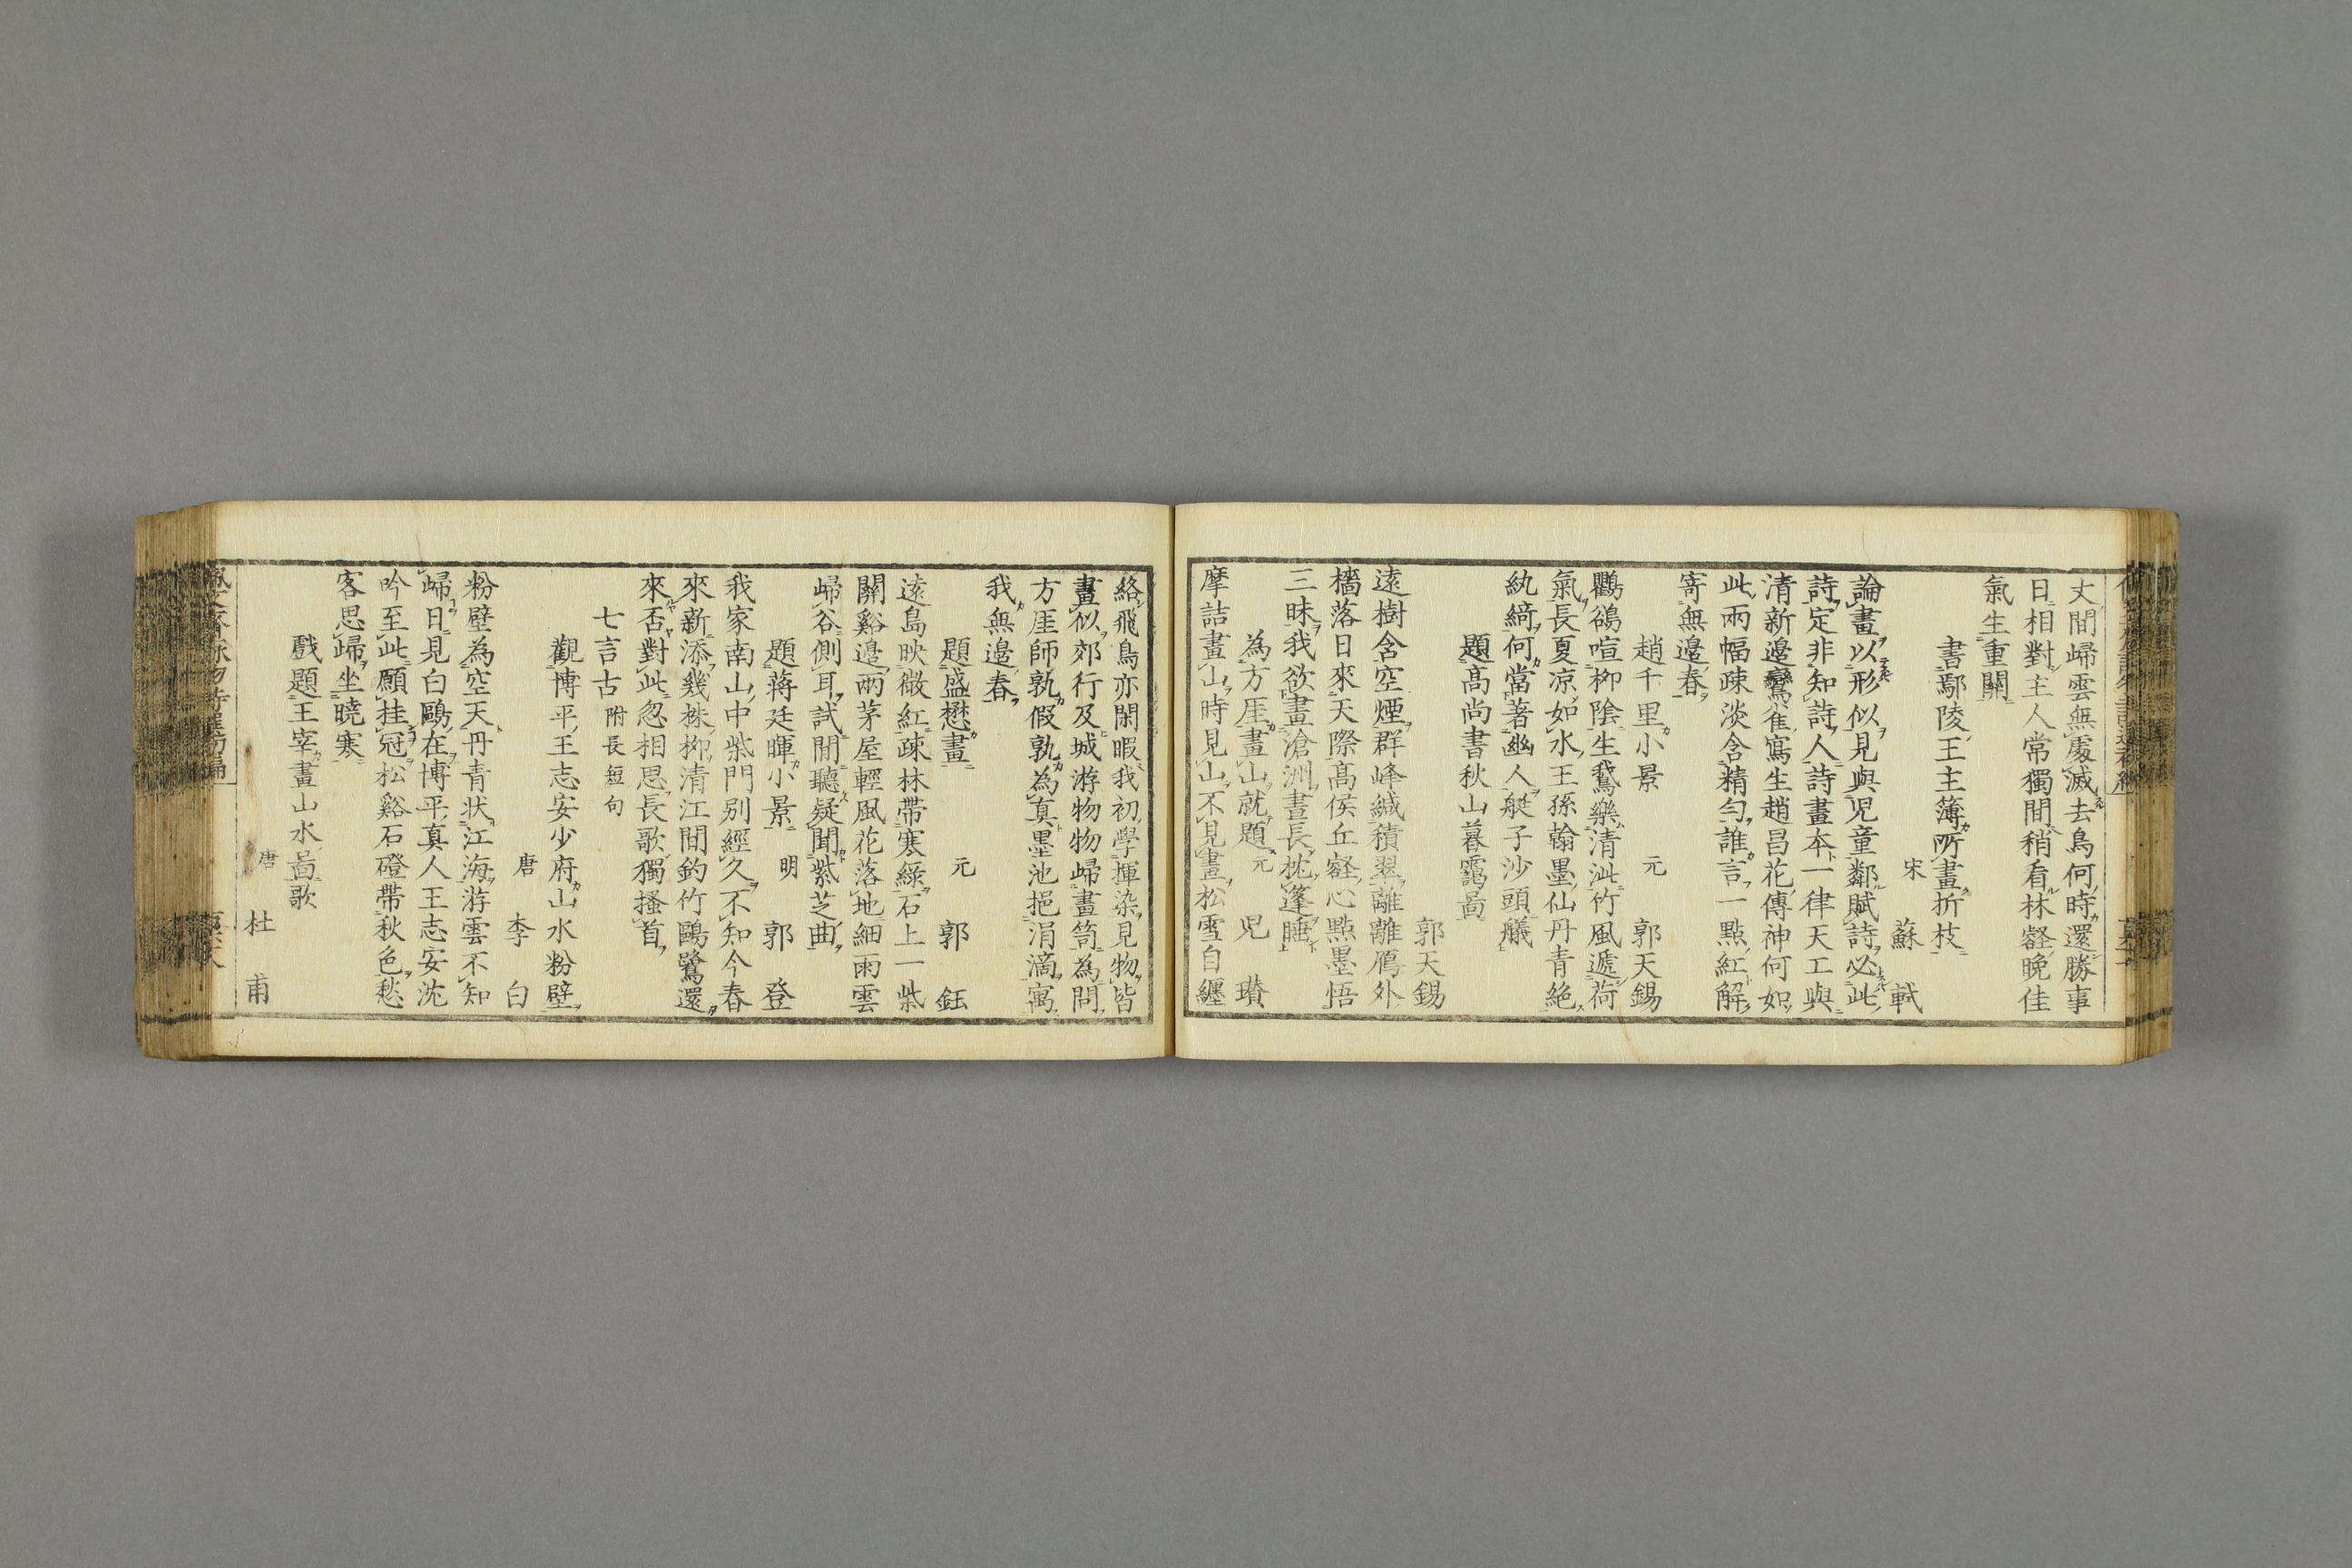 丈間歸雲無處滅去鳥何時還勝事
日相對主人常獨間稍看林壑晚佳
氣生重關
書鄢陵王主簿所畫折枝
宋 蘇軾
論畫以形似見與児童鄰賦詩必此
詩定非知詩人詩畫本一律天工與
清新邊鸞雀寫生趙昌花傳神何如
此兩幅疎淡含精匀誰言一點紅解
寄無邊春
趙千里小景 元 郭天錫
鸜鵒喧柳陰生鵞樂清沘竹風遞荷
氣長夏凉如水王孫翰墨仙丹青絶
紈綺何當著幽人艇子沙頭艤
題髙尚書秋山暮靄啚
郭天錫
遠樹含空煙群峰緘積翠離離鴈外
檣落日來天際髙侯丘壑心點墨悟
三昧我欲畫滄洲晝長枕蓬睡
為方厓畫山就題 元 児瓚
摩詰畫山時見山不見畫松雪自纒
絡飛鳥亦閑暇我初學揮染見物皆
畫似郊行及城游物物歸畫笥為問
方厓師孰假孰為真墨池挹涓滴寓
我無邊春
題盛懋畫 元 郭鈺
遠島映微紅疎林帶寒綠石上一柴
關谿邊兩茅屋輕風花落地細雨雲
歸谷側耳試閒聽疑聞紫芝曲
題蔣廷暉小景 明 郭登
我家南山中柴門別經久不知今春
來新添幾株柳清江間釣竹鷗鷺還
來否對此忽相思長歌獨搔首
七言古 附長短句
觀博平王志安少府山水粉壁
唐 李白
粉壁為空天丹青状江海游雲不知
歸日見白鷗在博平真人王志安沈
吟至此願挂冠松谿石磴帶秋色愁
客思歸坐曉寒
戲題王宰畫山水啚歌
唐 杜甫